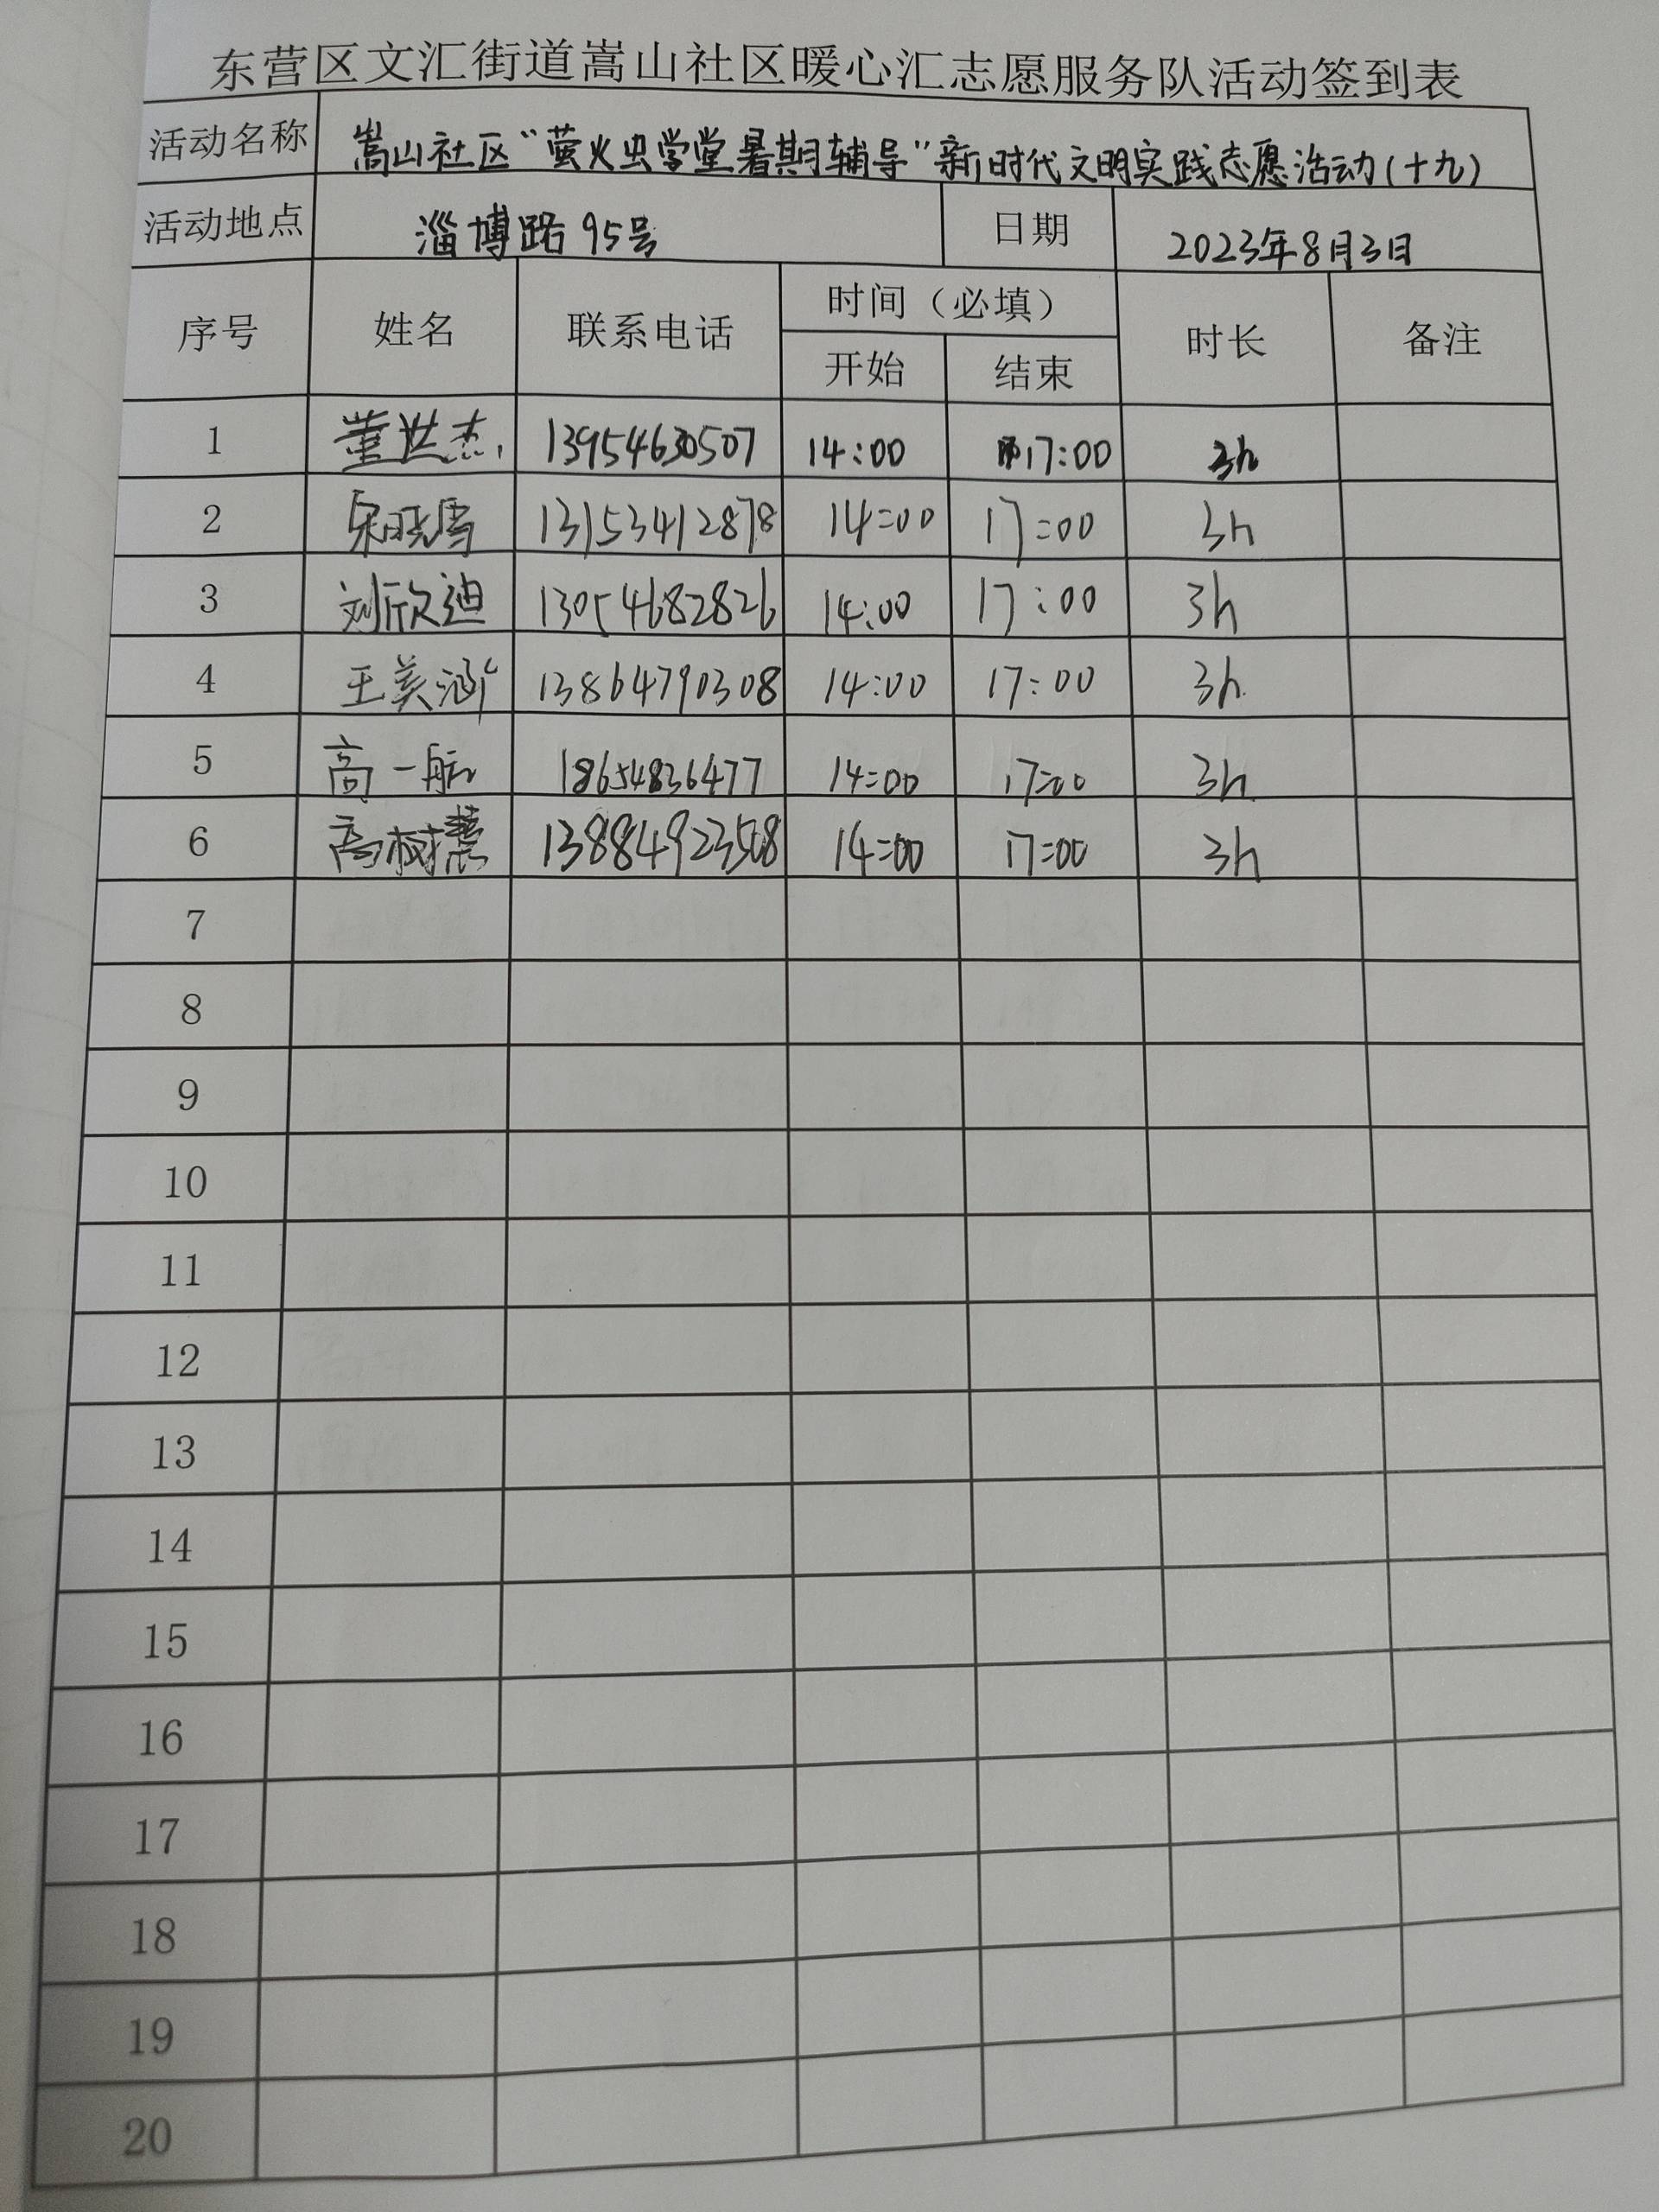 东营区文汇街道嵩山社区暖心汇志愿服务队活动签到表
活动名称 嵩山社区“萤火虫学堂暑期辅导”新时代文明实践志愿活动(十九)
活动地点 淄博路95号 日期 2023年8月3日
序号 姓名 联系电话 时间（必填） 时长 备注
开始 结束
1 董世杰 13954630507 14:00 17:00 3h
2 宋晓雪 13153412878 14:00 17:00 3h
3 刘欣迪 13054682826 14:00 17:00 3h
4 王美涵 13864790308 14:00 17:00 3h
5 高一航 18654836477 14:00 17:00 3h
6 高树慧 13884923508 14:00 17:00 3h
7
8
9
10
11
12
13
14
15
16
17
18
19
20